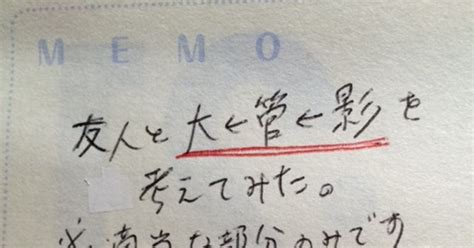 MEMO
友人と大←管←影を
考えてみた。
※適当な部分のみです